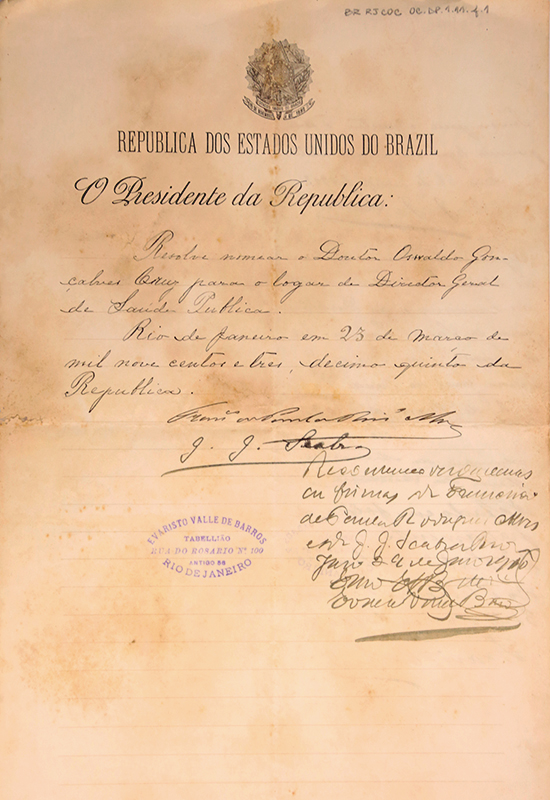 BR RJCOC OC.DP.1.11.f.1
REPUBLICA DOS ESTADOS UNIDOS DO BRAZIL
O Presidente da Republica:
Resolve nomear o Doutor Oswaldo Gon-
çalves Cruz para o logar de Director Geral
de Saude Publica.
Rio de Janeiro em 23 de Março de
mil nove centos e tres, decimo quinto da
Republica.
Franco de Paula Rodrigues Alves
J. J. Seabra
Reconheço verdadeiras
as firmas de Francisco
de Paula Rodrigues Alves
e de J. J. Seabra Rio
de
EVARISTO VALLE DE BARROS
TABELLIÃO
RUA DO ROSARIO Nº 100
ANTIGO 58
RIO DE JANEIRO